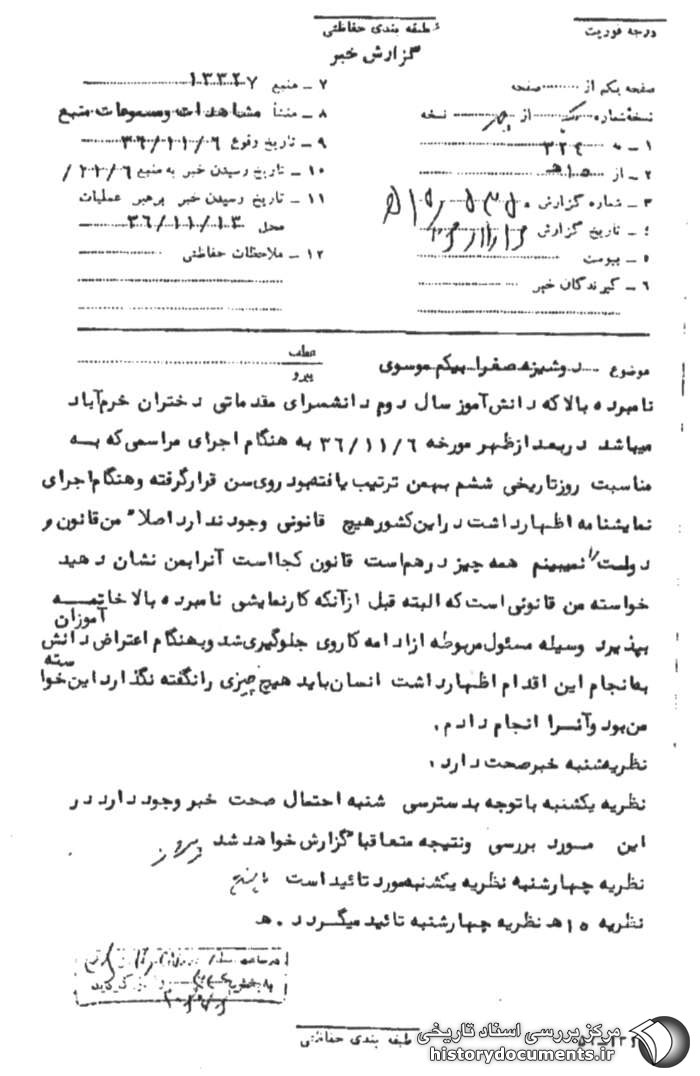 درجه فوریت
طبقه بندی حفاظتی
گزارش خبر
صفحه یکم از صفحه
نسخهٔ شماره یک از چهار نسخه
۱ ــ به ۳۲٤
۲ ــ از ۱۵هـ
۳ ــ شماره گزارش
٤ ــ تاریخ گزارش
۵ ــ پیوست
۶ ــ گیرندگان خبر
۷ ــ منبع ۱۳۳۲۷
۸ ــ منشأ مشاهدات ومسموعات منبع
۹ ــ تاریخ وقوع ۳۶/۱۱/۶
۱۰ ــ تاریخ رسیدن خبر به منبع ۱۱/۶/
۱۱ ــ تاریخ رسیدن خبر برهبر عملیات
محل ۳۶/۱۱/۱۳
۱۲ ــ ملاحظات حفاظتی
موضوع دوشیزه صغرا بیگم موسوی
عطف
پیرو
نامبرده بالا که دانش‌آموز سال دوم دانشسرای مقدماتی دختران خرم‌آباد
میباشد در بعدازظهر مورخه ۳۶/۱۱/۶ به هنگام اجرای مراسمی که بــه
مناسبت روز تاریخی ششم بهمن ترتیب یافته‌بود روی سن قرارگرفته وهنگام اجرای
نمایشنامه اظهارداشت دراین کشور هیچ قانونی وجود ندارد اصلا" من قانون و
دولت را نمیبینم همه چیز درهم است قانون کجااست آنرا بمن نشان دهید
خواسته من قانونی است که البته قبل ازآنکه کار نمایشی نامبرده بالا خاتمــه
بپذیرد وسیله مسئول مربوطه ازادامه کار وی جلوگیری شد وبهنگام اعتراض دانش آموزان
به‌انجام این اقدام اظهارداشت انسان باید هیچ چیزی را نگفته نگذارد این خواسته
من بود وآنــرا انجام دادم.
نظریه شنبه خبر صحت دارد.
نظریه یکشنبه با توجه بدسترسی شنبه احتمال صحت خبر وجود دارد در
این مــورد بررسی ونتیجه متعاقبا" گزارش خواهد شد
نظریه چهارشنبه نظریه یکشنبه مورد تائید است
نظریه ۱۵هـ نظریه چهارشنبه تائید میگــردد. هـ
طبقه بندی حفاظتی
مرکز بررسی اسناد تاریخی
historydocuments.ir